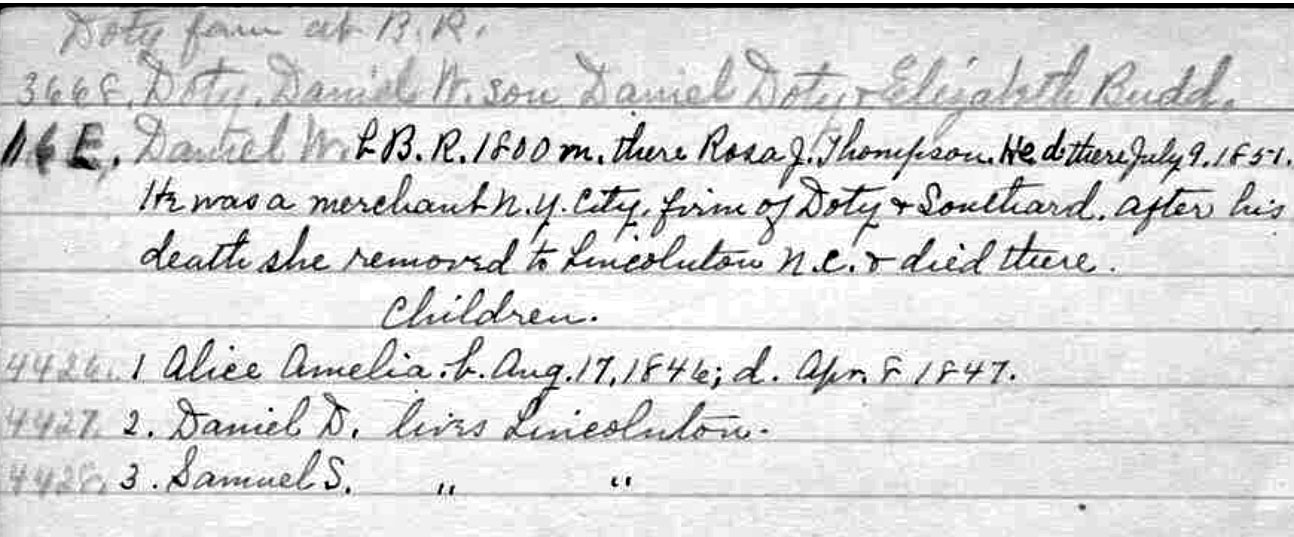 Doty farm at B.R.
3668. Doty, Daniel W. son Daniel Doty & Elizabeth Budd.
Daniel W. b B.R. 1800 m. there Rosa J. Thompson. He d. there July 9. 1851.
He was a merchant N.Y. City, firm of Doty & Southard. after his
death she removed to Lincolnton N.C. & died there.
Children.
4426. 1 Alice Amelia. b. Aug. 17, 1846; d. Apr. 8 1847.
4427. 2. Daniel D. lives Lincolnton.
4428. 3. Samuel S. " "